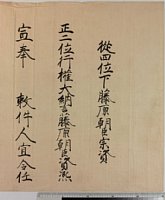 從四位下藤原朝臣宗資
正二位行權大納言藤原朝臣資熈
宣奉　敕件人宜令任